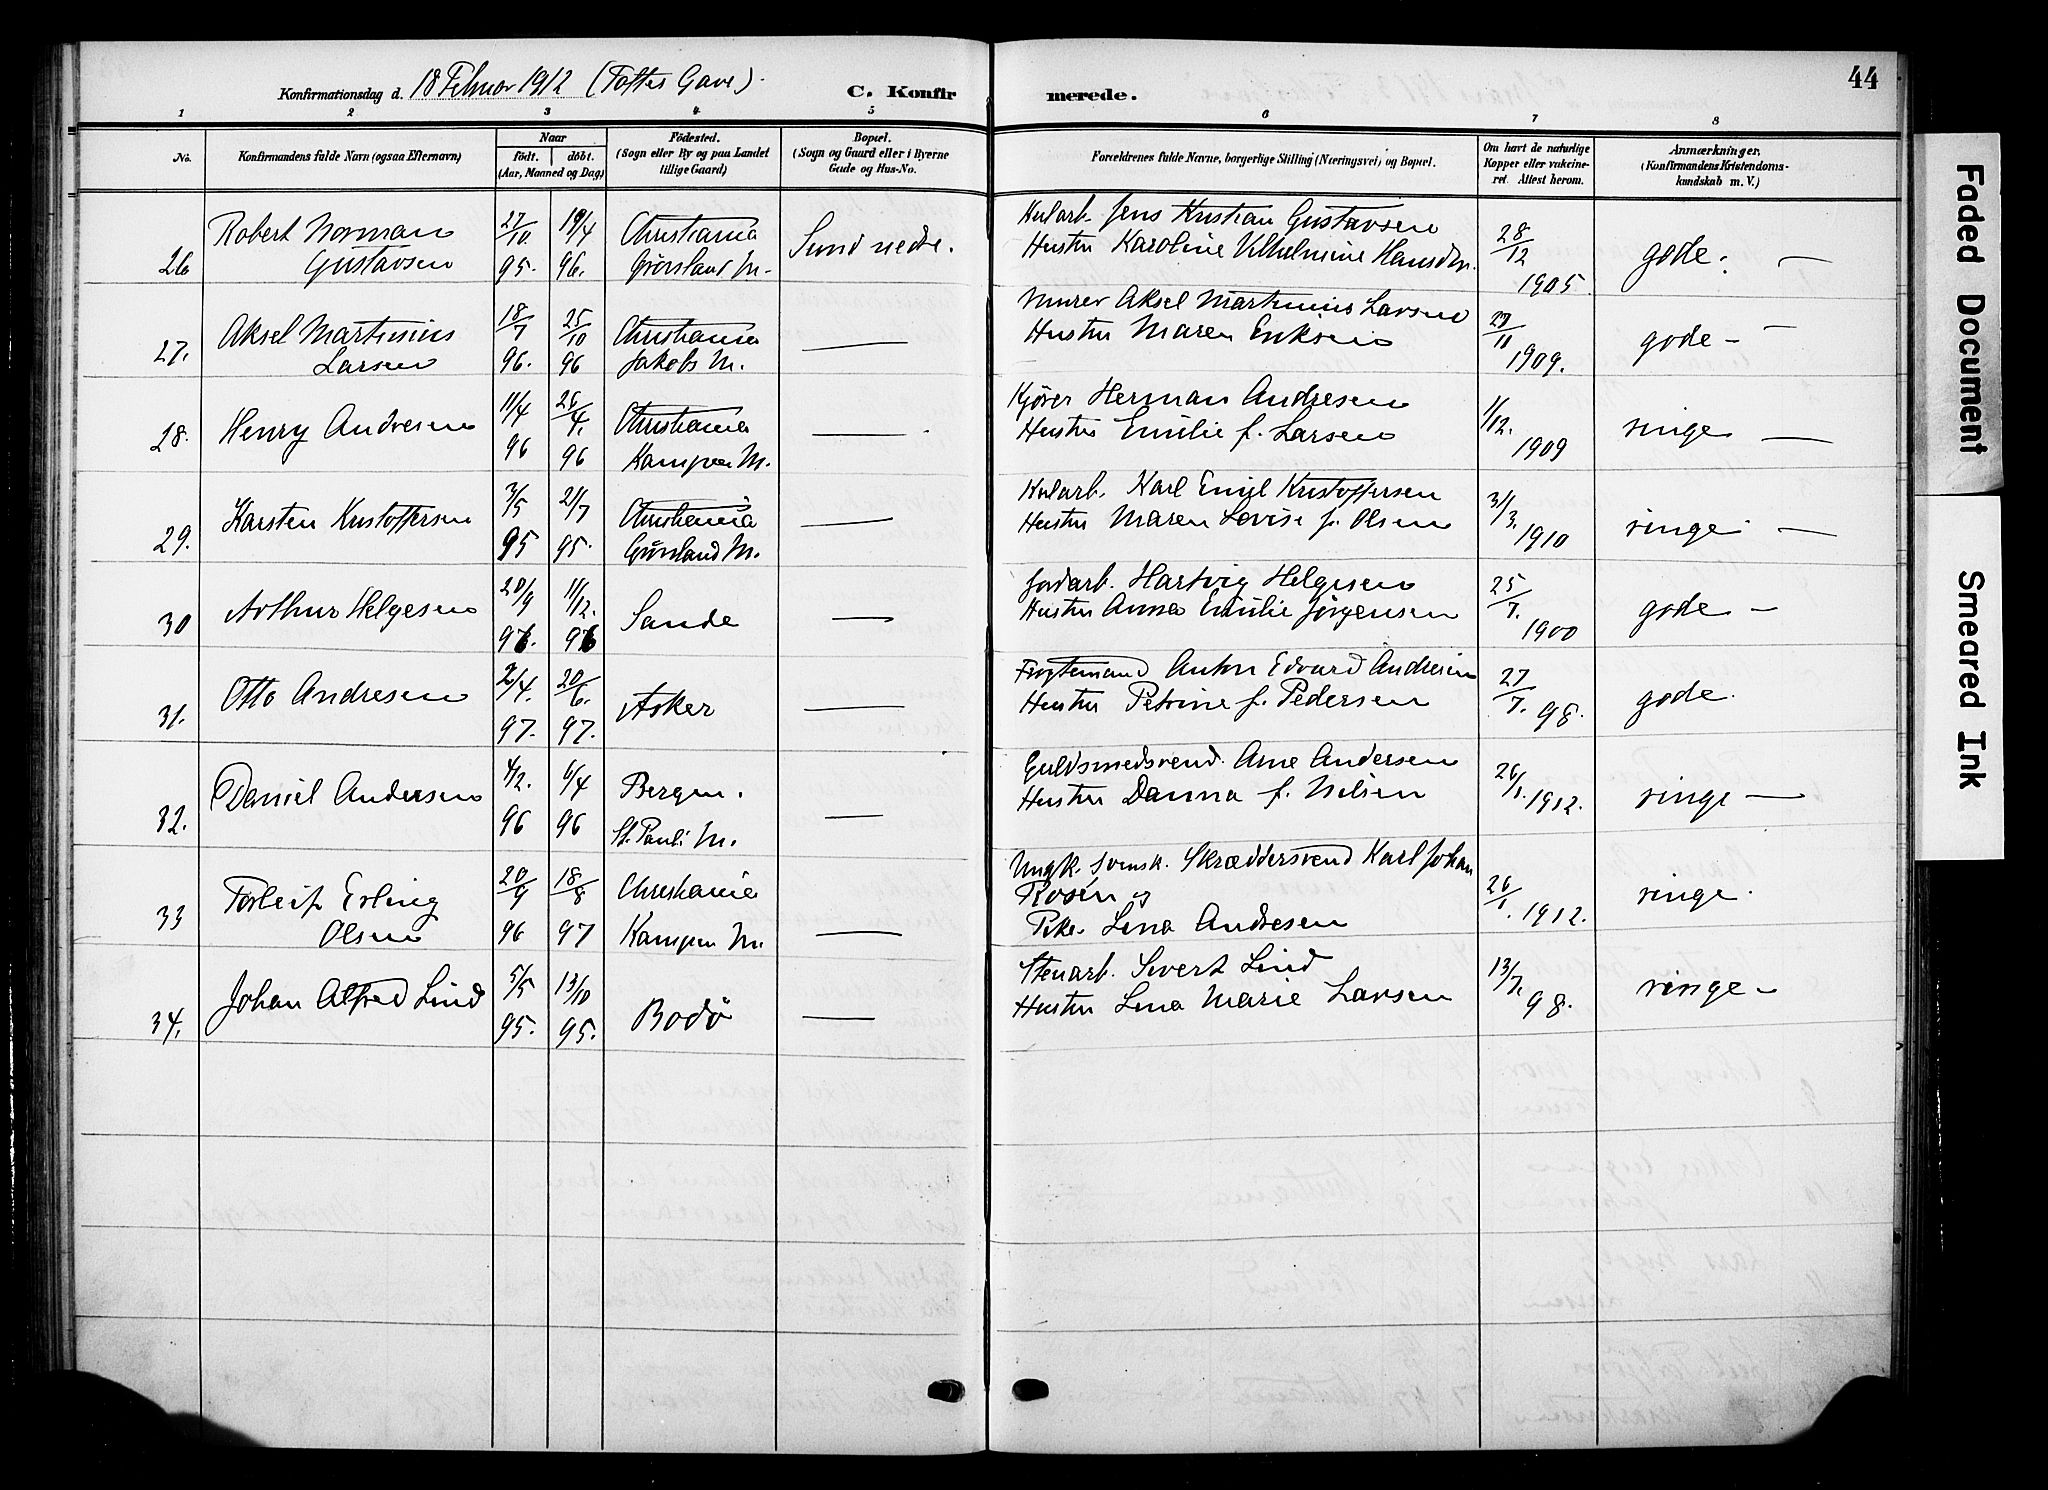 44
Konfirmationsdag d. 18 Februar 1912 (Toftes Gave)
C. Konfir merede.
1 2 3 4 5 6 7 8
No.
Konfirmandens fulde Navn (ogsaa Efternavn)
Naar
født. døbt.
(Aar, Maaned og Dag)
Fødested.
(Sogn eller By og paa Landet
tillige Gaard)
Bopæl.
(Sogn og Gaard eller i Byerne
Gade og Hus-No.
Forældrenes fulde Navne, borgerlige Stilling (Næringsvei) og Bopæl.
Om havt de naturlige
Kopper eller vakcine-
ret. Attest herom.
Anmærkninger.
(Konfirmandens Kristendoms-
kundskab m. V.)
26 Robert Norman Gustavsen
27/10 95. 19/4 96.
Christiania Grønland M.
Sund nedre.
Kularb. Jens Kristian Gustavsen
Hustru Karoline Vilhelmine Hansdtr.
28/12 1905.
gode. —
27. Aksel Martinius Larsen
18/7 96. 25/10 96
Christiania Jakobs M.
—
Murer Aksel Martinius Larsen
Hustru Maren Eriksen
27/11 1909.
gode —
28. Henry Andresen
11/4 96 26/4. 96
Christiania Kampen M.
—
Kjører Herman Andresen
Hustru Emilie f. Larsen
1/12. 1909
ringe —
29. Karsten Kristoffersen
3/5 95 21/7 95.
Christiania Grønland M.
—
Kularb. Karl Emil Kristoffersen
Hustru Maren Lovise f. Olsen
31/3. 1910
ringe —
30 Arthur Helgesen
20/9 96. 11/12. 96
Sande
—
Jordarb. Hartvig Helgesen
Hustru Anna Emilie Jørgensen
25/7. 1900
gode —
31. Otto Andresen
2/4. 97. 20/6. 97.
Asker
—
Anton Edvard Andresen
Hustru Petrine f. Pedersen
27/7. 98.
gode.
32. Daniel Andersen
4/2. 96 6/4 96
Bergen. St. Pauli M.
—
Guldsmedsvend. Arne Andersen
Hustru Danna f. Nilsen
26/1. 1912.
ringe —
33 Torleif Erling Olsen
20/9 96 18/8 97
Christiania Kampen M.
—
Ungk. svensk. Skræddersvend Karl Johan
Rosén og
Pike. Lina Andresen
26/1. 1912.
ringe.
34. Johan Alfred Lind
5/5 95. 13/10 95.
Bodø
—
Stenarb. Sivert Lind
Hustru Lina Marie Larsen
13/7. 98.
ringe —
Faded Document
Smeared Ink